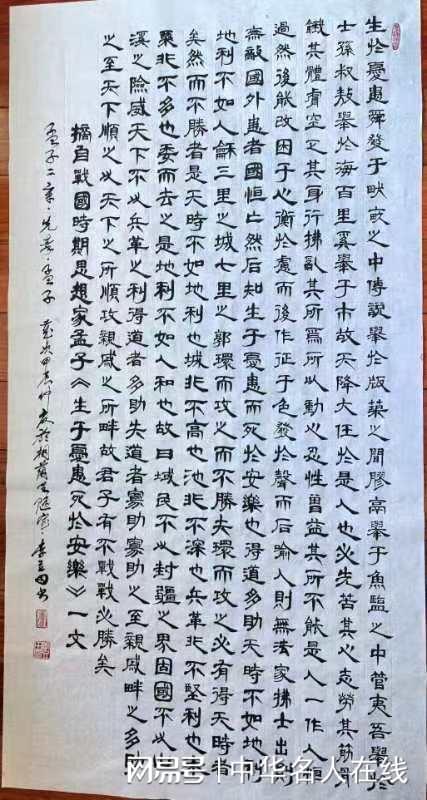 生於憂患舜發于畎畝之中傅説舉於版築之間膠鬲舉于魚鹽之中管夷吾舉於
士孫叔敖舉於海百里奚舉于市故天降大任於是人也必先苦其心志勞其筋骨
餓其體膚空乏其身行拂亂其所爲所以動心忍性曾益其所不能是人一作人恒
過然後能改困于心衡於慮而後作征于色發於聲而后喻入則無法家拂士出則
無敵國外患者國恒亡然后知生于憂患而死於安樂也得道多助天時不如地利
地利不如人龢三里之城七里之郭環而攻之而不勝夫環而攻之必有得天時者
矣然而不勝者是天時不如地利也城非不高也池非不深也兵革非不堅利也米
粟非不多也委而去之是地利不如人和也故曰域民不以封疆之界固國不以山
溪之險威天下不以兵革之利得道者多助失道者寡助寡助之至親戚畔之多助
之至天下順之以天下之所順攻親戚之所畔故君子有不戰戰必勝矣
摘自戰國時期思想家孟子《生于憂患死於安樂》一文
孟子二章·先秦·孟子 歲次甲辰
网易号 | 中华名人在线